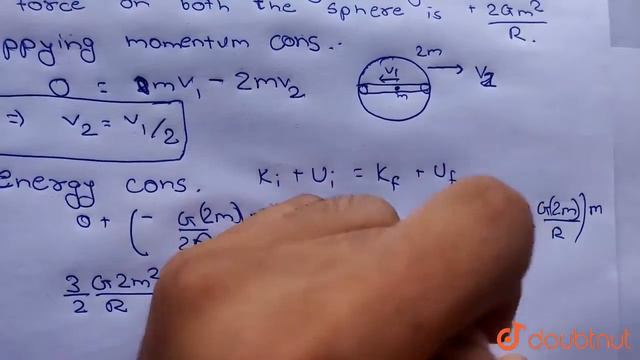 force on both the sphere is + 2Gm²/R.
ppying momentum cons.:
2m
V₁
m
V₂
0 = mV₁ - 2mV₂
⇒ V₂ = V₁/2
energy cons. Kᵢ + Uᵢ = K_f + U_f
0 + (- G(2m)/2R G(2m)/R) m
3/2 G2m²/R
doubtnut